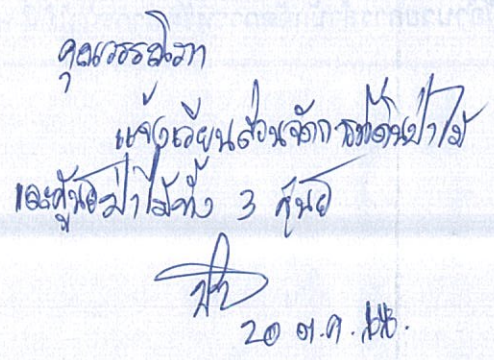 คุณวรรณิภา
แจ้งเวียนส่วนจัดการที่ดินป่าไม้
และศูนย์ป่าไม้ทั้ง 3 ศูนย์
20 ต.ค.